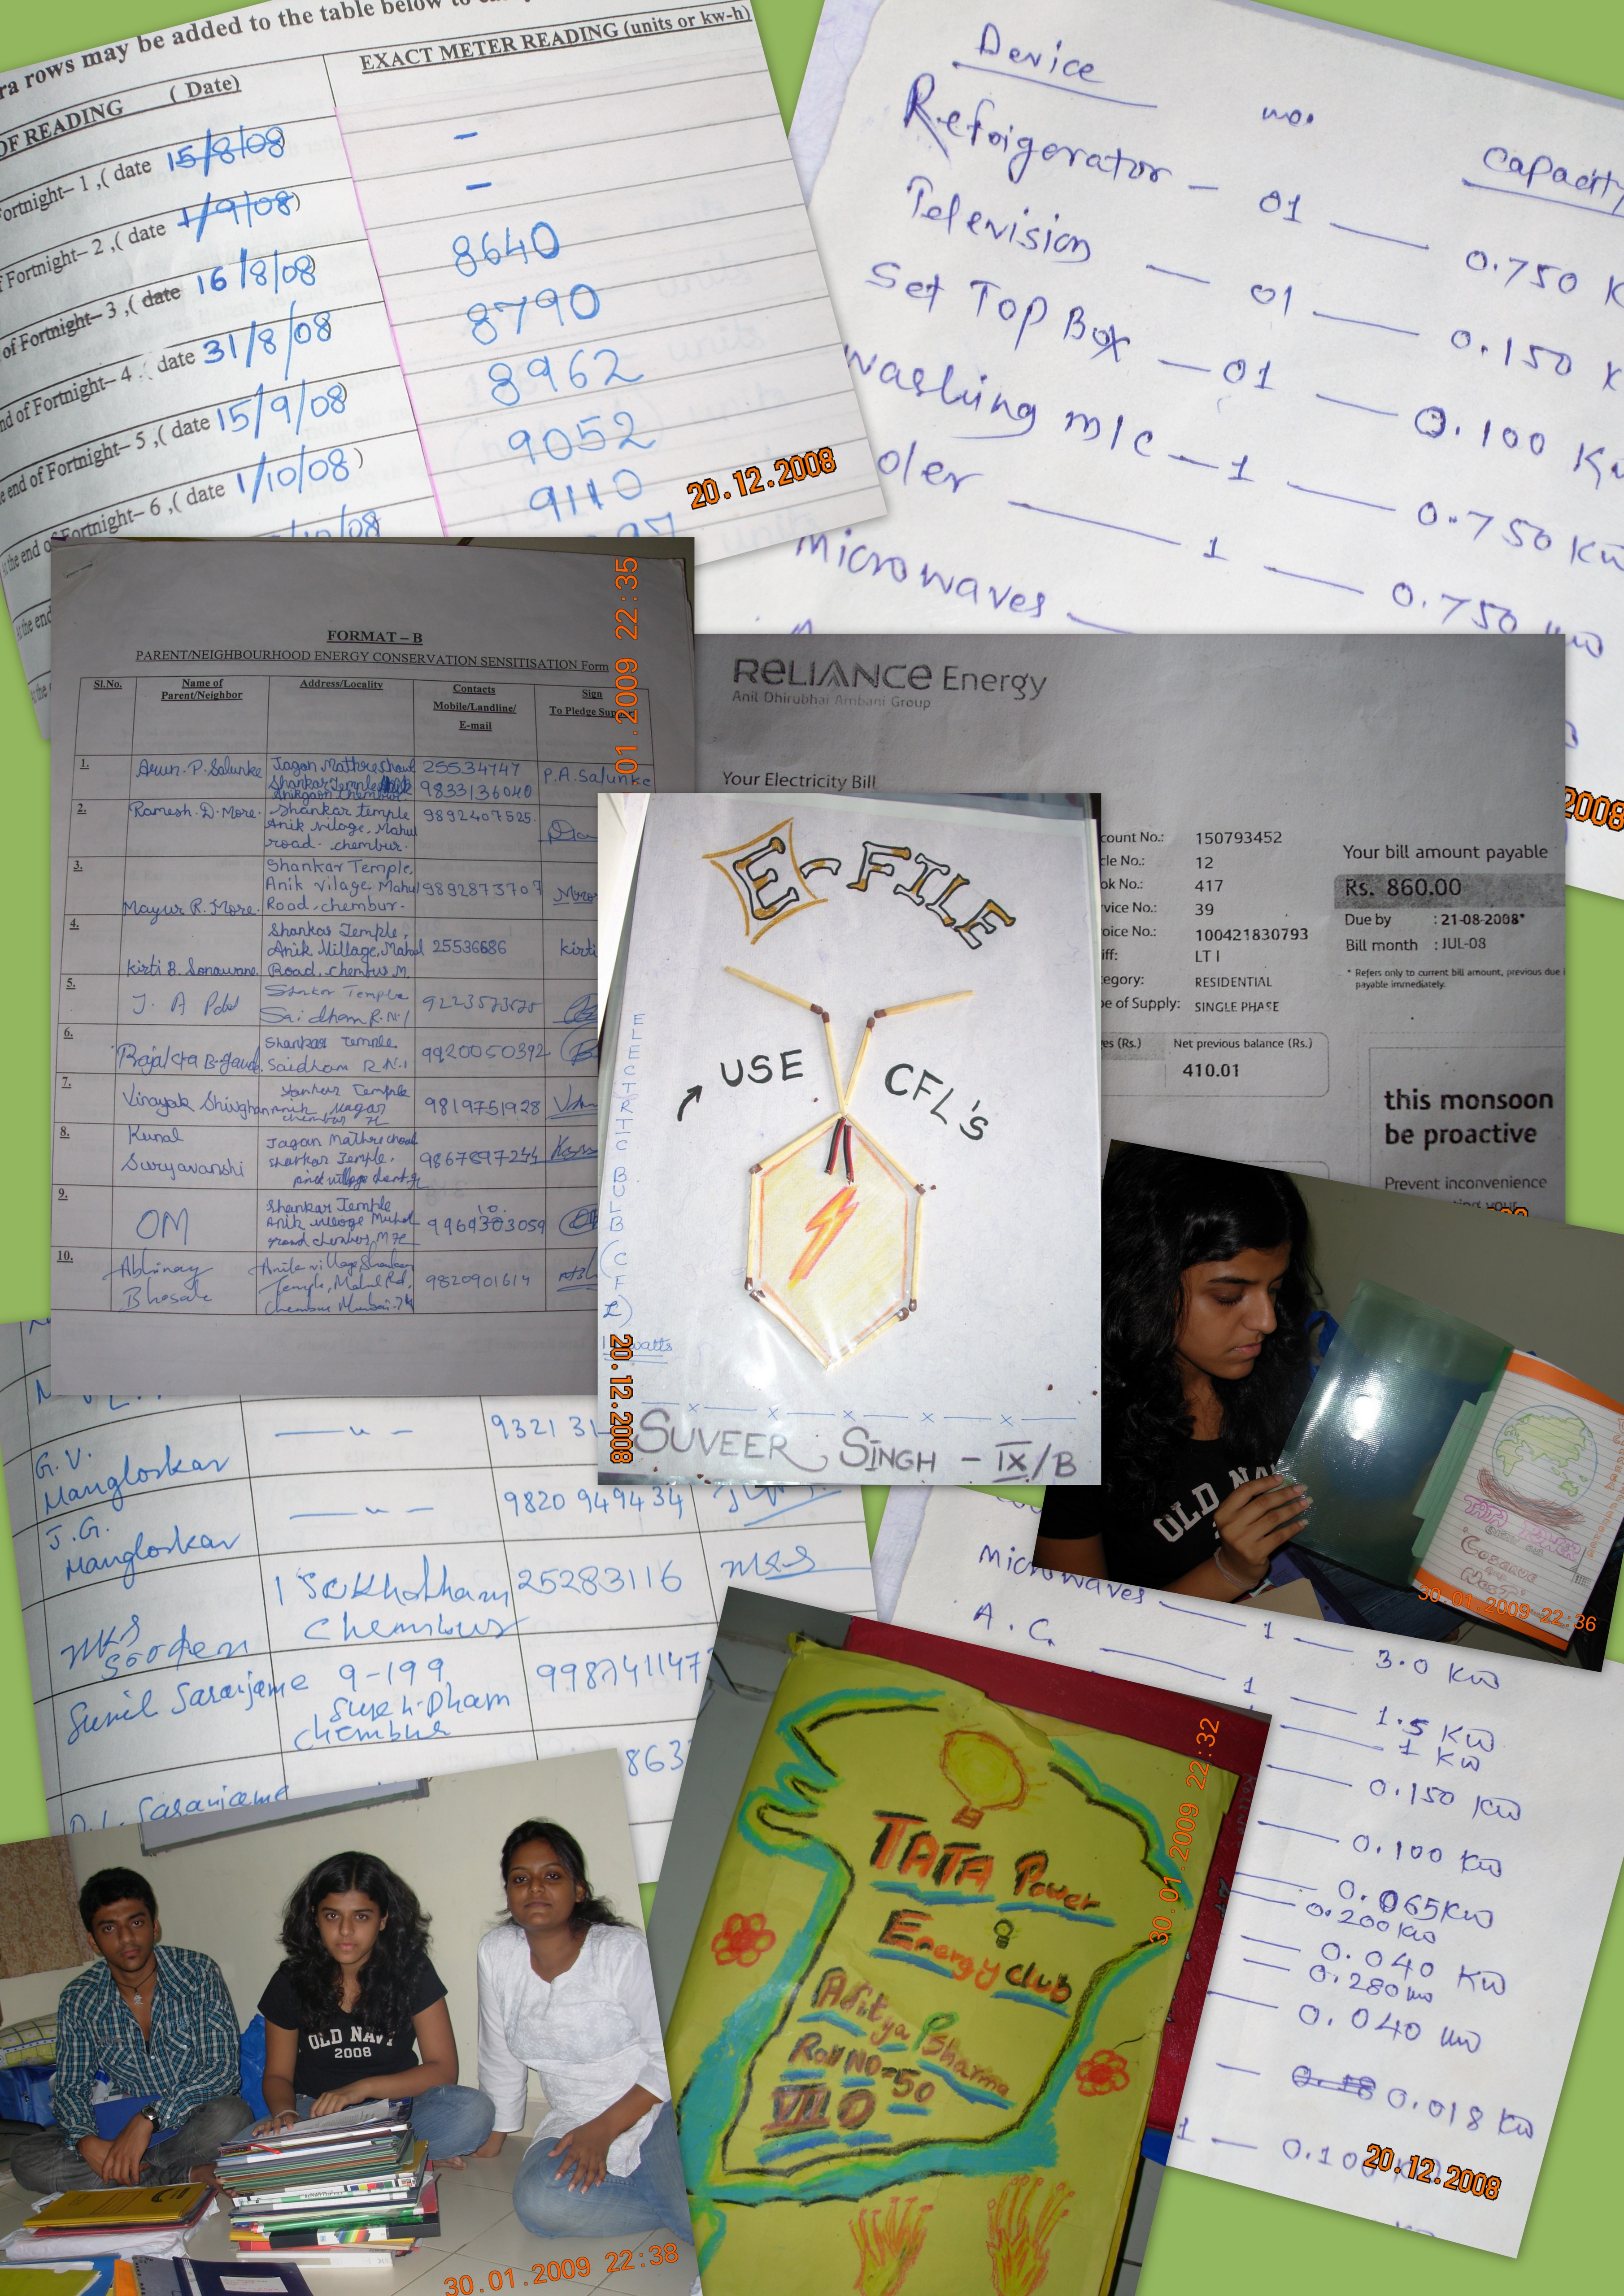 ra rows may be added to the table below to
OF READING ( Date)
EXACT METER READING (units or kw-h)
Fortnight– 1 ,( date 15/8/08)
–
of Fortnight– 2 ,( date 1/9/08)
–
of Fortnight– 3 ,( date 16/8/08)
8640
end of Fortnight– 4 ,( date 31/8/08
8790
e end of Fortnight– 5 ,( date 15/9/08)
8962
At the end of Fortnight– 6 ,( date 1/10/08)
9052
9110
20.12.2008
Device
no.
Capacity
Refoigerator – 01 — 0.750 K
Television — 01 — 0.150 K
Set Top Box — 01 — 0.100 Kw
washing m/c — 1 — 0.750 Kw
oler — 1 — 0.750 kw
microwaves —
2008
FORMAT – B
PARENT/NEIGHBOURHOOD ENERGY CONSERVATION SENSITISATION Form
Sl.No.
Name of
Parent/Neighbor
Address/Locality
Contacts
Mobile/Landline/
E-mail
Sign
To Pledge Supp
1.
Arun.P.Salunke
Jagan Mathreshawl
Shankar Temple
Anikgaon Chembur.
25534747
9833136040
P.A.Salunke
2.
Ramesh.D.More.
Shankar temple
Anik vilage, Mahul
road. chembur.
9892407525.
3.
Mayur R. More.
Shankar Temple,
Anik vilage Mahul
Road, chembur.
9892873707
4.
kirti B. Sonawane.
Shankar Temple,
Anik Village, Mahul
Road, chembur
25536686
kirti
5.
Shankar Temple
Saidham R.N.1
9223573575
6.
Shankar Temple
Saidham R.N.1
9920050392
7.
Vinayak
9819751928
8.
Kunal
Suryavanshi
Jagan Mathre chawl
Shankar Temple,
9867897244
9.
OM
Shankar Temple
Anik village Mahul
10.
Abhinay
Bhosale
Anik village, Shankar
Temple, Mahul Rd,
Chembur Mumbai-74
9820901614
01.2009 22:35
RELIANCE Energy
Anil Dhirubhai Ambani Group
Your Electricity Bill
count No.: 150793452
cle No.: 12
ok No.: 417
rvice No.: 39
oice No.: 100421830793
iff: LT I
tegory: RESIDENTIAL
pe of Supply: SINGLE PHASE
Your bill amount payable
Rs. 860.00
Due by : 21-08-2008*
Bill month : JUL-08
* Refers only to current bill amount, previous due i
payable immediately.
es (Rs.)
Net previous balance (Rs.)
410.01
this monsoon
be proactive
Prevent inconvenience
E-FILE
USE CFL's
ELECTRIC BULB (CFL)
watts
20.12.2008
SUVEER SINGH – IX/B
OLD NAVY
TATA POWER
30.01.2009 22:36
G.V.
Mangloskar
— " —
9321 31
J.G.
Mangloskar
— " —
9820 949434
MKS
Sooden
1 Sukhdham
Chembur
25283116
MKS
Sunil Saraijame
9-199
Sukh-Dham
Chembur
9987411477
863
microwaves — 1 — 3.0 KW
A.C. — 1 — 1.5 KW
— 1 KW
— 0.150 KW
— 0.100 KW
— 0.065KW
— 0.200 KW
— 0.040 KW
— 0.280 kw
— 0.040 kw
— 0.18 0.018 KW
1 — 0.10
20.12.2008
TATA Power
Energy club
Aditya Sharma
Roll No-50
VII D
30.01.2009 22:32
OLD NAVY
2008
30.01.2009 22:38